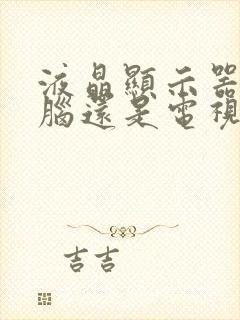 液晶顯示器
腦還是電視
吉吉